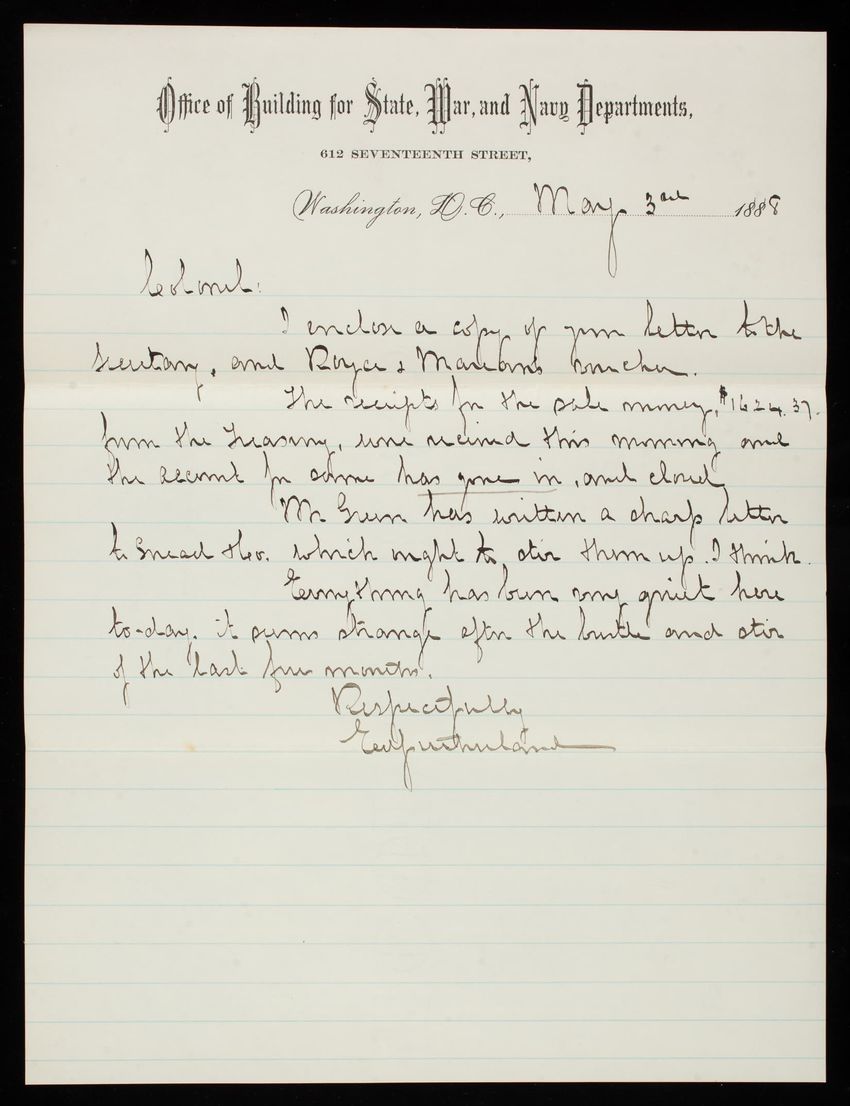 Office of Building for State, War, and Navy Departments,
612 SEVENTEENTH STREET,
Washington, D.C., May 3rd 1888
Colonel:
I enclose a copy of your letter to the
Secretary, and Royce & Marean's voucher.
The receipts for the sale money, $1624.37.
from the Treasury, were received this morning and
the account for same has gone in, and closed
Mr Green has written a sharp letter
to Snead & Co. which ought to stir them up. I think.
Everything has been very quiet here
to-day. it seems strange after the bustle and stir
of the last few months.
Respectfully